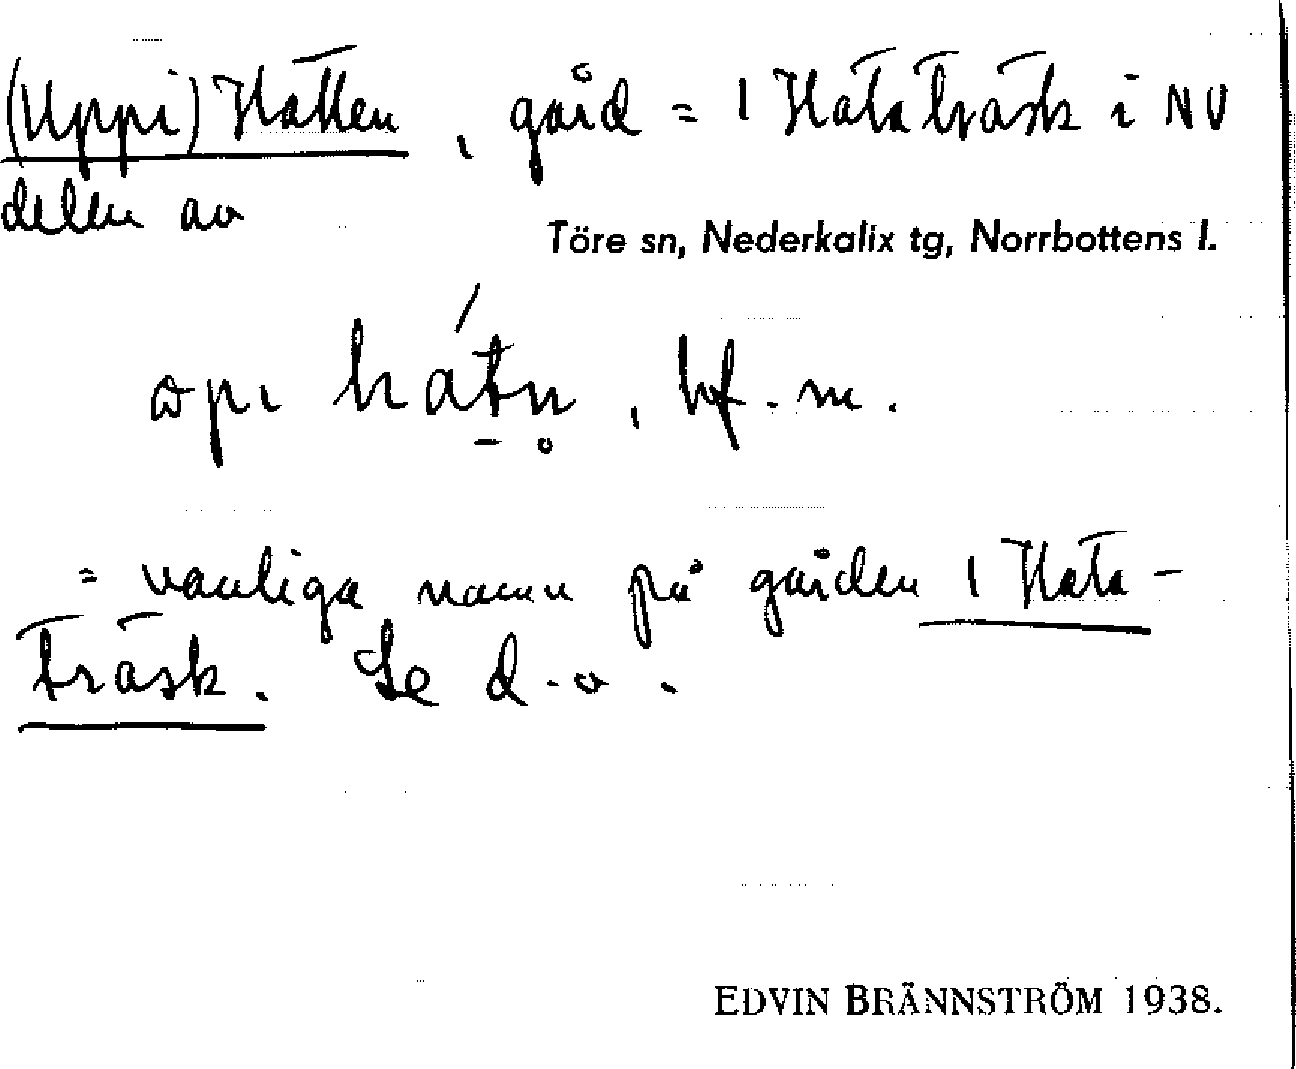 (Uppi) Hatten, gård = 1 Hataträsk i NV
delen av
Töre sn, Nederkalix tg, Norrbottens l.
hátn̥, bf. m.
= vanliga namn på gården 1 Hata-
träsk. Se d.o.
EDVIN BRÄNNSTRÖM 1938.